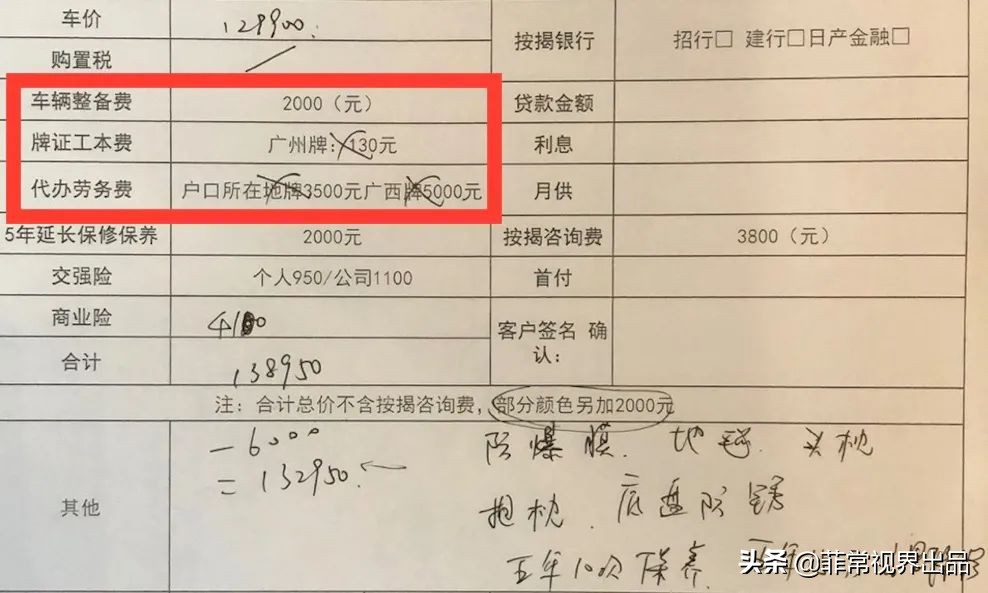 车价 129900. 按揭银行 招行□ 建行□日产金融□
购置税
车辆整备费 2000（元） 贷款金额
牌证工本费 广州牌：130元 利息
代办劳务费 户口所在地牌3500元广西牌5000元 月供
5年延长保修保养 2000元 按揭咨询费 3800（元）
交强险 个人950/公司1100 首付
商业险 4100 客户签名 确认：
合计 138950
注：合计总价不含按揭咨询费，部分颜色另加2000元
其他
-6000
=132950.
防爆膜. 地毯. 头枕
抱枕. 底盘防锈
五年10次保养. 五年
头条 @菲常视界出品